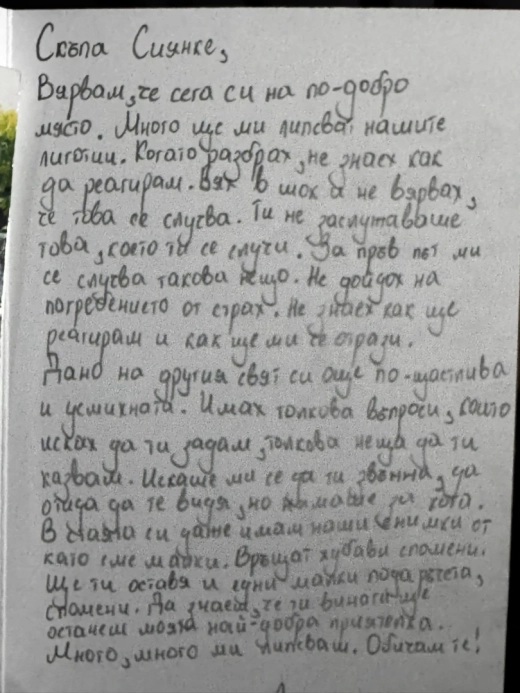 Скъпа Сиянке,
Вярвам, че сега си на по-добро
място. Много ще ми липсват нашите
лиготии. Когато разбрах, не знаех как
да реагирам. Бях в шок и не вярвах,
че това се случва. Ти не заслужаваше
това, което ти се случи. За пръв път ми
се случва такова нещо. Не дойдох на
погребението от страх. Не знаех как ще
реагирам и как ще ми се отрази.
Дано на другия свят си още по-щастлива
и усмихната. Имах толкова въпроси, които
исках да ти задам, толкова неща да ти
казвам. Искаше ми се да ти звънна, да
отида да те видя, но нямаше за кога.
В стаята си даже имам наши снимки от
като сме малки. Връщат хубави спомени.
Ще ти оставя и едни малки подаръчета,
спомени. Да знаеш, че ти винаги ще
останеш моята най-добра приятелка.
Много, много ми липсваш. Обичам те!